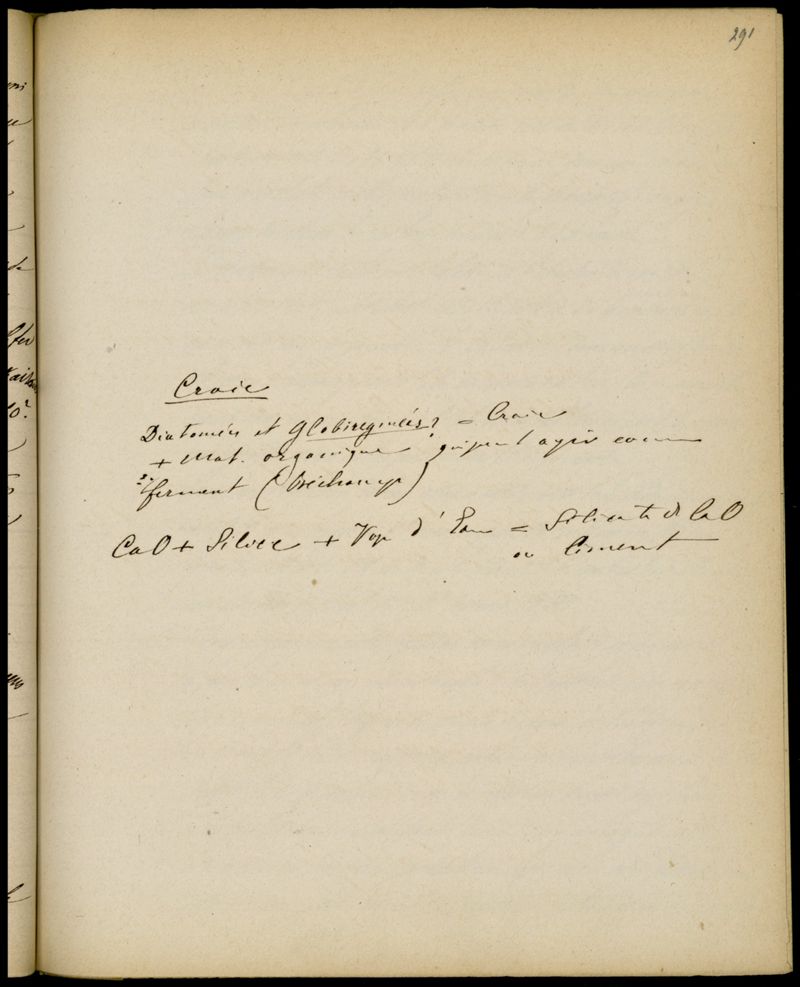 291
Craie
Diatomées et Globiregnées? = Craie
+ Mat. organique qui peut agir comme
ferment (Béchamp)
CaO + Silice + Vap d'Eau = Silicate de CaO
ou Ciment